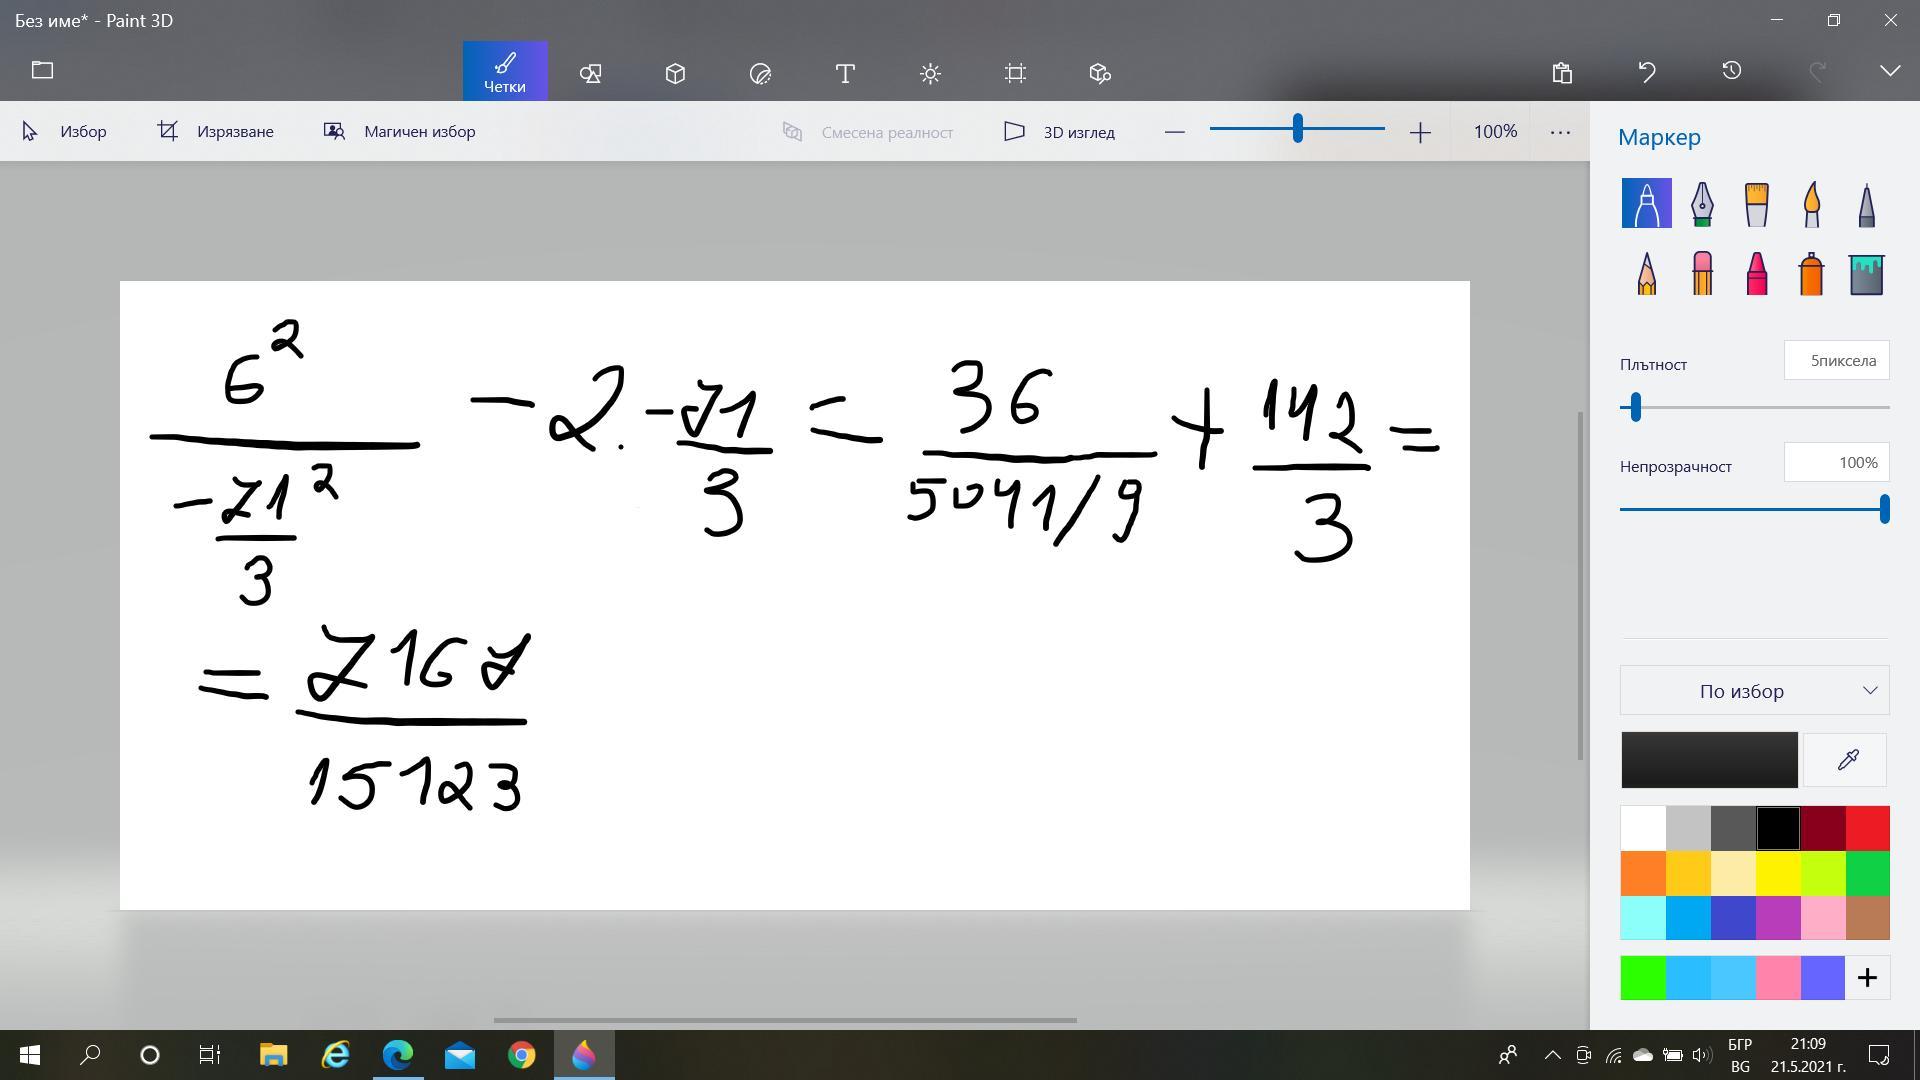 Без име* - Paint 3D
Четки
Избор
Изрязване
Магичен избор
Смесена реалност
3D изглед
100%
Маркер
Плътност
5пиксела
Непрозрачност
100%
По избор
6² / (-71²/3) - 2 . -71/3 = 36 / (5041/9) + 142/3 =
= 7167 / 15123
БГР
BG
21:09
21.5.2021 г.